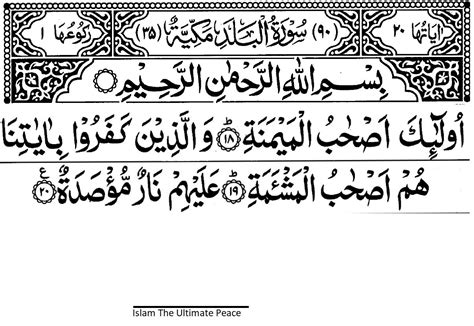 اٰيَاتُهَا ٢٠ (٩٠) سُوْرَةُ الْبَلَدِ مَكِّيَّةٌ (٣٥) رُكُوْعُهَا ١
بِسْمِ اللّٰهِ الرَّحْمٰنِ الرَّحِيْمِ
اُولٰٓئِكَ اَصْحٰبُ الْمَيْمَنَةِ ؕ﴿١٨﴾ وَالَّذِيْنَ كَفَرُوْا بِاٰيٰتِنَا
هُمْ اَصْحٰبُ الْمَشْـَٔمَةِ ؕ﴿١٩﴾ عَلَيْهِمْ نَارٌ مُّؤْصَدَةٌ ﴿٢٠﴾ ع
Islam The Ultimate Peace